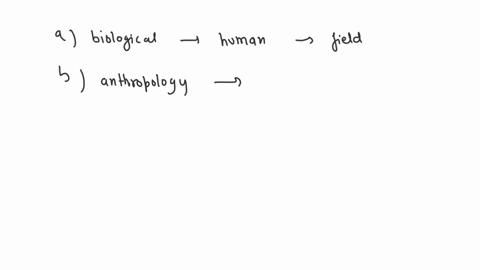 a) biological → human → field
b) anthropology →